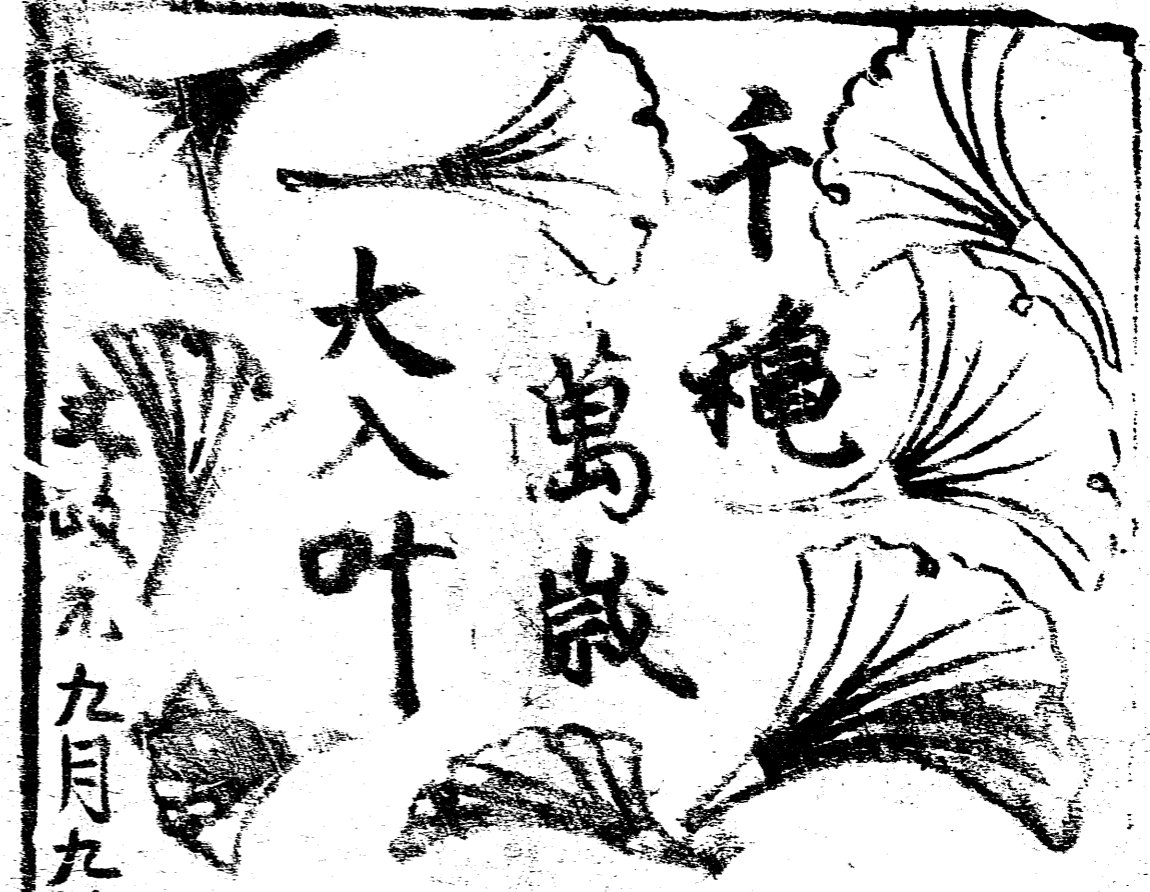 千穐
萬歳
大入叶
九月九